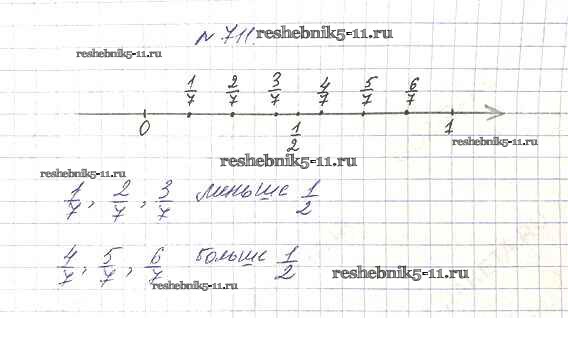 № 711. reshebnik5-11.ru
reshebnik5-11.ru
1/7 2/7 3/7 4/7 5/7 6/7
0 1/2 1
reshebnik5-11.ru
reshebnik5-11.ru
reshebnik5-11.ru
1/7, 2/7, 3/7 меньше 1/2
4/7, 5/7, 6/7 больше 1/2
reshebnik5-11.ru
reshebnik5-11.ru